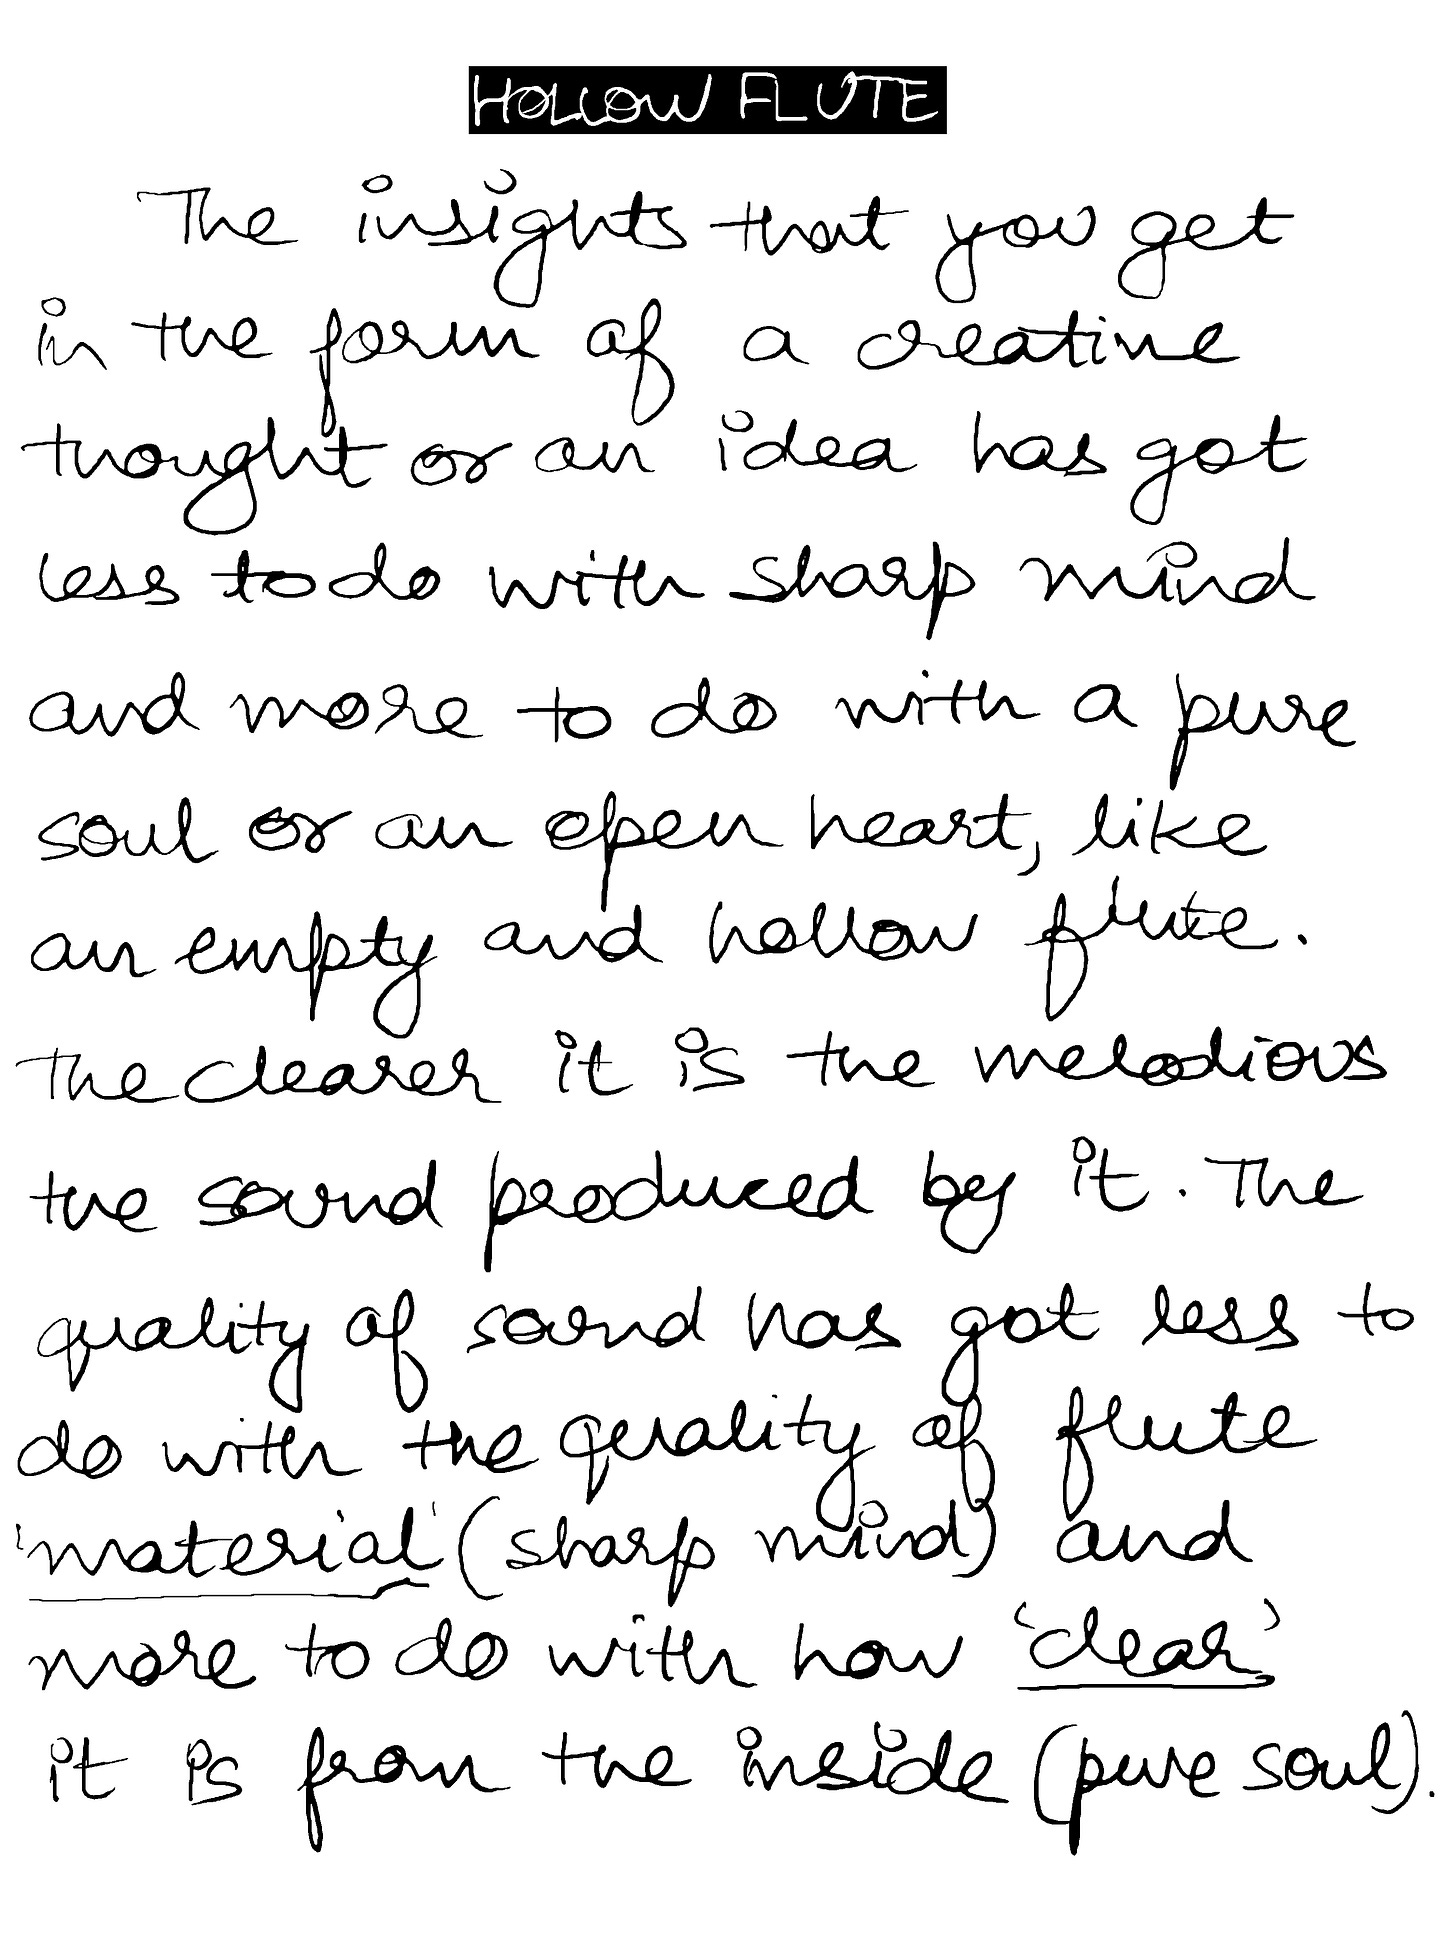 HOLLOW FLUTE
The insights that you get
in the form of a creative
thought or an idea has got
less to do with sharp mind
and more to do with a pure
soul or an open heart, like
an empty and hollow flute.
The clearer it is the melodious
the sound produced by it. The
quality of sound has got less to
do with the quality of flute
'material' (sharp mind) and
more to do with how 'clear'
it is from the inside (pure soul).